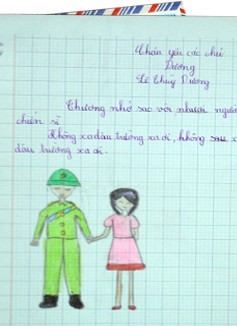 Thân yêu các chú
Dương
Lê Thuỳ Dương
Thương nhớ sao với người
chiến sĩ
Không xa đâu Trường xa ơi, không xa
đâu trường xa ơi.